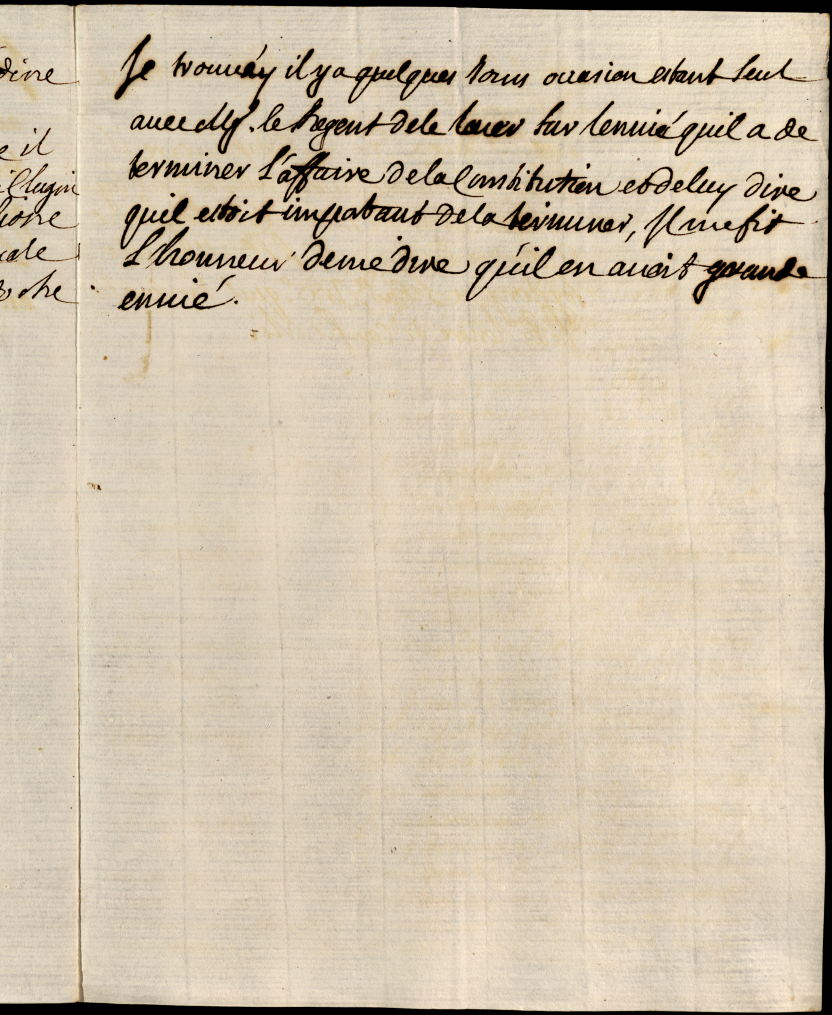 dire
e il
cale
Je trouvay il y a quelques jours occasion estant seul
avec Mgr. le Regent de le louer sur lenvie quil a de
terminer L'affaire de la Constitution et de luy dire
quil estoit important de la terminer, Il me fit
L'honneur de me dire qu'il en avoit grande
envie.